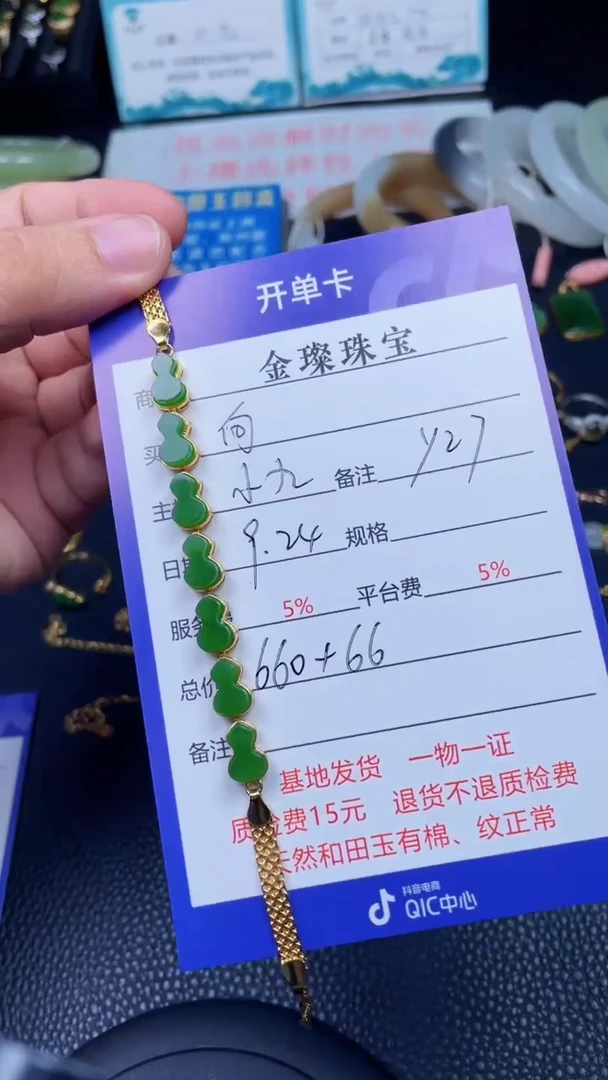 开单卡
商 金璨珠宝
买 向
主 小九 备注 Y27
日期 9.24 规格
服务 5% 平台费 5%
总价 660+66
备注
基地发货 一物一证
质检费15元 退货不退质检费
天然和田玉有棉、纹正常
抖音电商
QIC中心